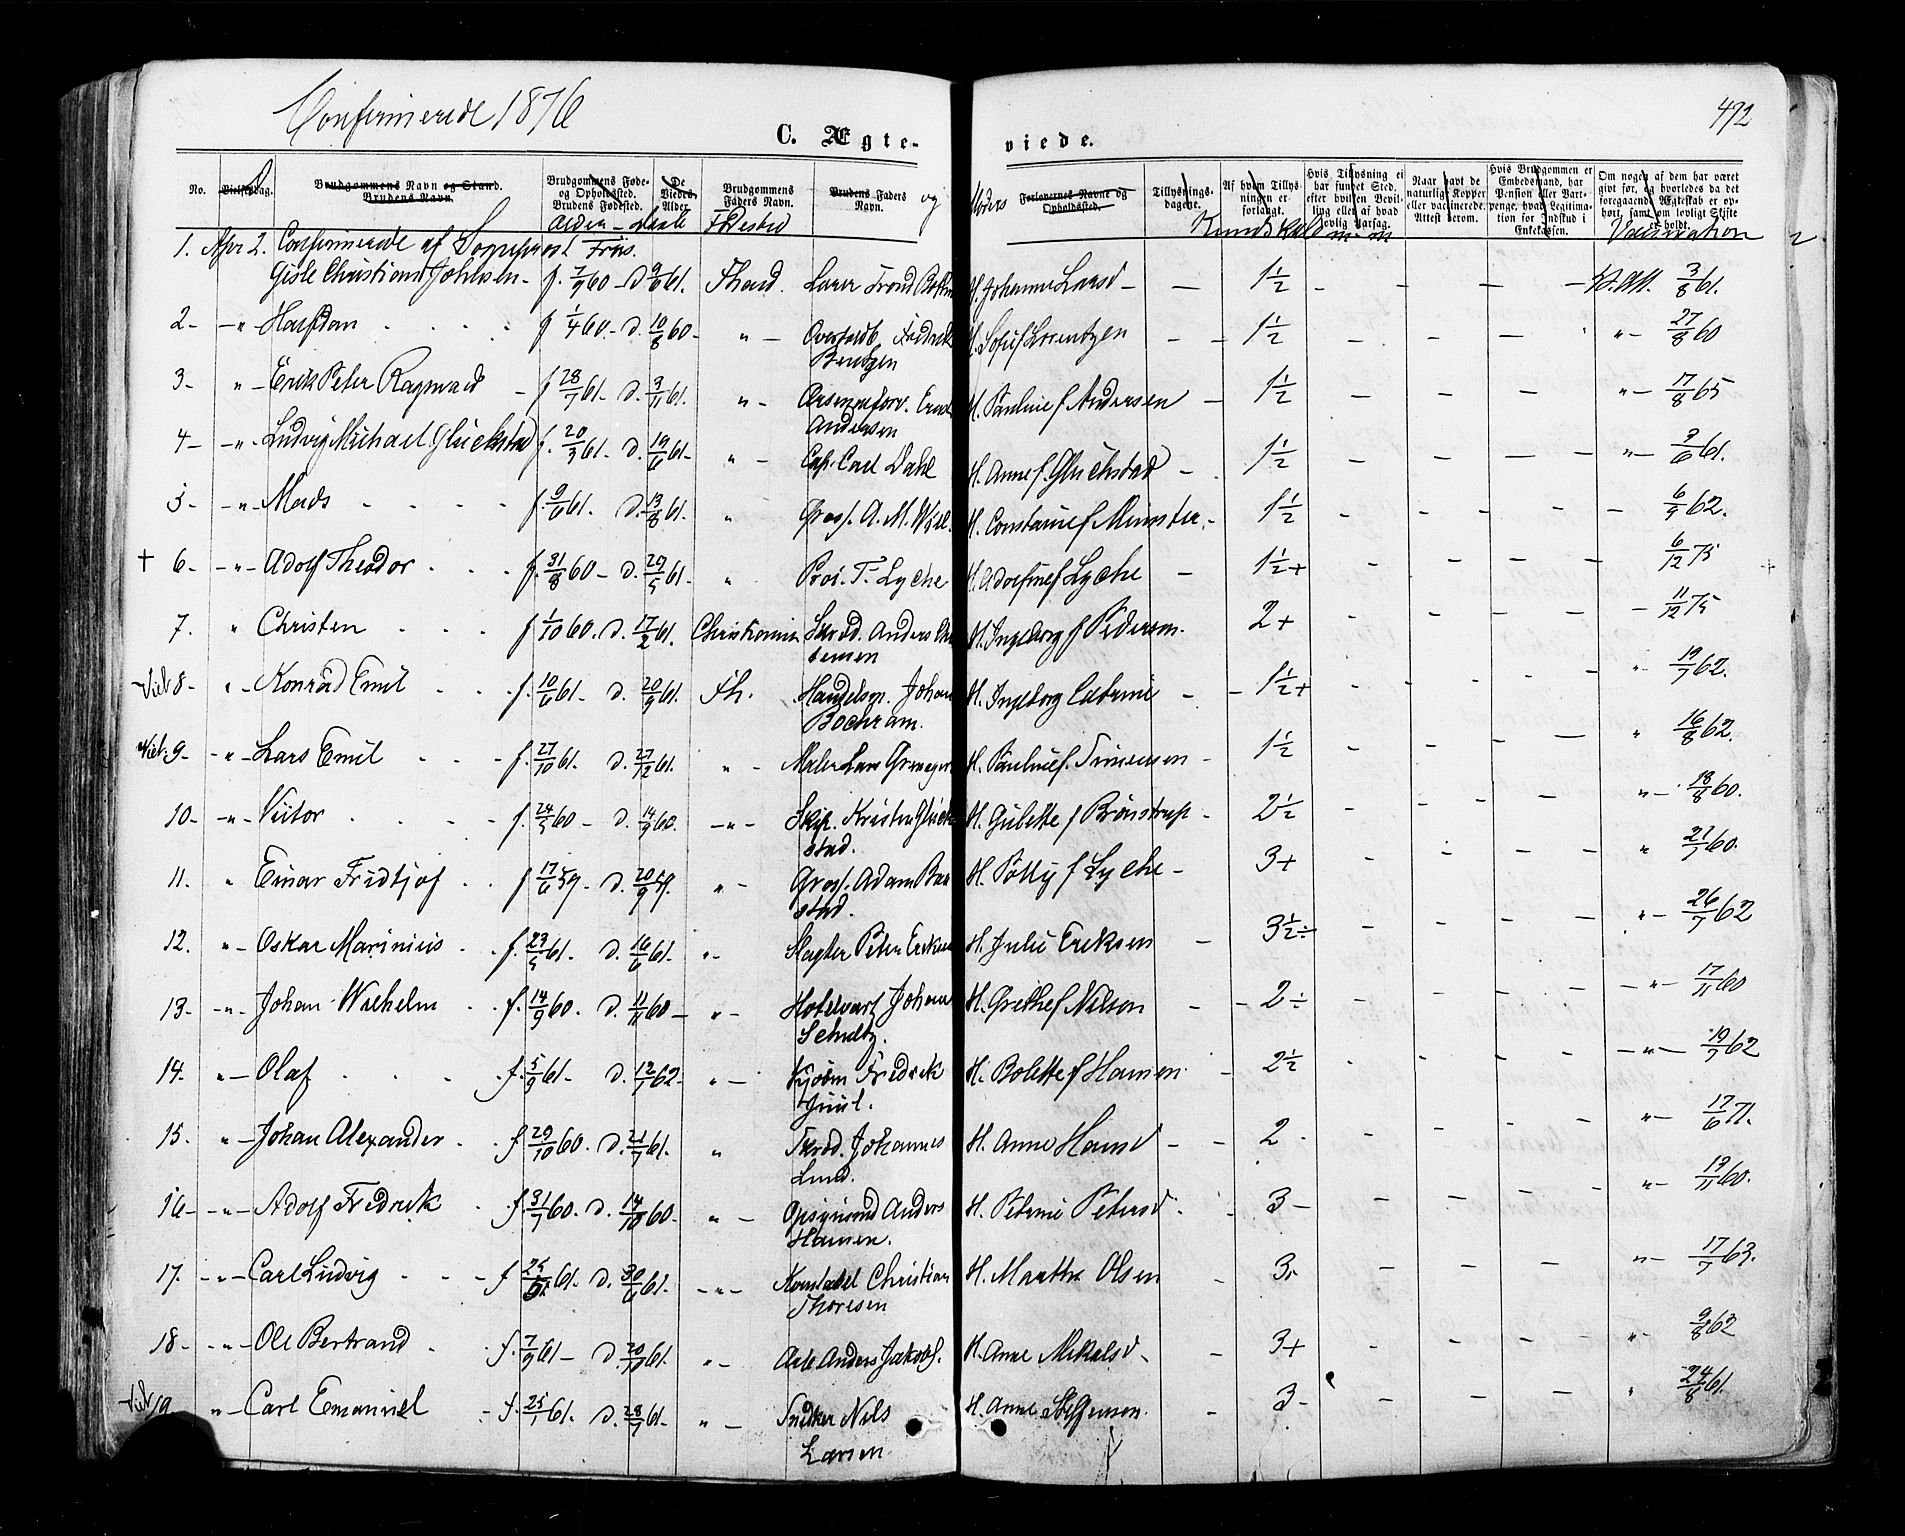 Confirmerede 1876
472
C. Ægte-
viede.
No.
Vielsesdag.
Brudgommens Navn og Stand.
Brudens Navn.
Brudgommens Føde- og Opholdssted.
Brudens Fødested.
De Viedes Alder.
Brudgommens Faders Navn.
Brudens Faders Navn.
og
Moders
Forlovernes Navne og Opholdssted.
Tillysnings-dagene.
Af hvem Tillysningen er forlangt.
Hvis Tillysning ei har fundet Sted, efter hvilken Bevilling eller af hvad lovlig Aarsag.
Naar havt de naturlige Kopper eller vaccinerede. Attest herom.
Hvis Brudgommen er Embedsmand, har Pension eller Vartpenge, hvad Legitimation for Indskud i Enkekassen.
Om nogen af dem har været gift før, og hvorledes da det foregaaende Ægteskab er ophørt, samt om lovligt Skifte er holdt.
Alder – Daab
Fødested
Kundskab
Vaccination
1. Apr 2. Confirmerede af Sogneprost Friis.
Gisle Christian Johnsen – f. 7/9 60 – D 9/6 61. Thond. Lærer Trond H. Johanne Larsd – – 1 1/2 – – – – V. Att. 3/8 61.
2 – " – Halfdan . . . . f 1/4 60 – D. 10/8 60 – " – Fredrik Bentzen H. Sofie f Lorentzen – – 1 1/2 – – – " – 27/8 60
3 – " – Erik Peter Ragnvald – f 28/7 61 – D. 3/11 61. " – Andersen H. Pauline f Andersen – 1 1/2 – – – " – 17/8 65
4 – " – Ludvig Michael Gluckstad f. 20/3 61. D. 19/6 61 – " – Cap. Carl Dahl H. Anne f. Gluckstad – . 1 1/2 – – – – " – 9/6 61.
5 – " – Mads . . . . f. 9/6 61. D. 13/8 61. " Gross. A. M. Wiel. H. Constance f Munster. – 1 1/2 – – – – – 6/9 62.
† 6 – " – Adolf Theodor . . . f. 31/8 60 – D. 29/5 61 – " T. Lyche H. Adolfine f Lyche – 1 1/2 + – – – – 6/12 75
7. " Christen . . . f 1/10 60. D. 17/2 61. Christiania Anders H. Ingeborg f Pedersen. 2 + – – – – 11/12 75
8 – " – Konrad Emil . . f. 10/6 61 – D. 20/9 61. Th. Handelsm. Johan Bochram. H. Ingeborg Catrine – – 1 1/2 + – – – – " – 19/7 62.
9 – " – Lars Emil . . – f. 27/10 61. D. 27/12 61. " – Maler Lars H. Pauline f. – 1 1/2 – – – – " 16/8 62.
10 – " – Victor . . . – f. 24/5 60 – D. 14/9 60. – " – Skip. Kristen Gluckstad. H. Gulette f Brönstrup – 2 1/2 – – – – " – 18/8 60.
11. " Einar Fridtjof . . f 17/6 59 – D. 20/9 59. " – Gross. Adam stad. H. f Lyche – 3 + – – – – " 21/7 60.
12. " – Oskar Marinius . . f. 23/5 61. D. 16/6 61. " – Slagter Peter Eriksen H. Julie Eriksen – 3 1/2 ÷ – – – – " – 26/7 62
13 – " – Johan Wilhelm . . f. 14/9 60. D. 11/11 60 – " – Hotelvært Johan Schultz. H. Grethe f Nilson – – 2 ÷ – – – – – " – 17/11 60
14. " – Olaf . . . . f. 5/9 61 – D. 12/7 62 – " – Kjöbm Fredrik Juul. H. Bolette f Hansen – 2 1/2 – – – – – " – 19/7 62
15. " – Johan Alexander . . f 29/10 60. D. 21/7 61. " Skræd. Johannes Lund. H. Anne Hansd – – 2 – – – – " – 17/6 71.
16 – " – Adolf Fredrik . f. 31/7 60. D. 14/10 60 – " – Opsynsmd Anders Hansen. H. Petrine Petersd . . 3 – – – – – " – 13/11 60.
17. – " – Carl Ludvig . . – f 61. D. 30/6 61. – " – Konstabel Christian Thoresen H. Marthe Olsen – 3 – – – – – " – 17/7 63.
18 – – " – Ole Bertrand . . f. 7/9 61 – D. 20/10 61. " – Anders Jakobs. H. Anne Mikalsd – – 3 + – – – – " – 9/8 62
19 " – Carl Emanuel . f. 25/1 61. D. 28/7 61. " – Snedker Nils Larsen H. Anne Steffensen. – 3 – – – – – " 24/8 61.